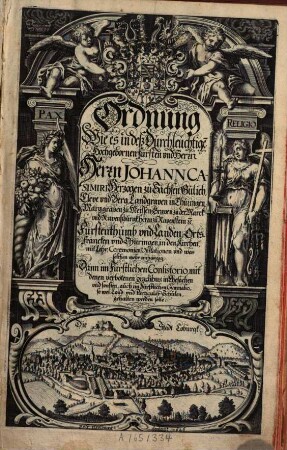 PAX
RELIGIO
Ordnung
Wie es in deß Durchleuchtige
Hochgebornen Fürsten und Herrn
Herrn JOHANN CA-
SIMIRI Herzogen zu Sachsen Gülich
Cleve und Berg Landgraven in Thüringen
Marggraven zu Meissen Graven zu der Marck
und Ravenspurg Herrn zu Ravenstein ꝛc.
Fürstenthumb und Landen, Orts
Francken und Thüringen, in den Kirchen,
mit Lehr, Ceremonien, Visitationen und was
solchen mehr anhängig,
Dann im Fürstlichen Consistorio, mit
denen verbotenen gradibus in Ehesachen
und sonsten, auch im Fürstlichen Gymnasio,
so wol Land- und Particular Schulen,
gehalten werden solle.
Die
Stadt Coburgk.